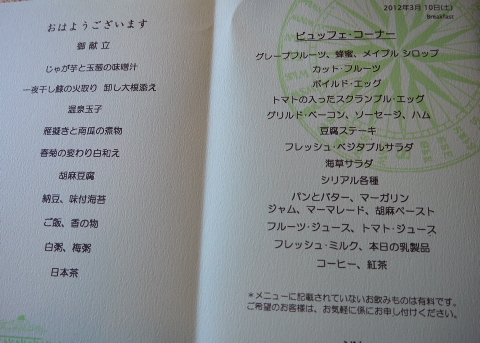 おはようございます
御献立
じゃが芋と玉葱の味噌汁
一夜干し鰈の火取り 卸し大根添え
温泉玉子
雁擬きと南瓜の煮物
春菊の変わり白和え
胡麻豆腐
納豆、味付海苔
ご飯、香の物
白粥、梅粥
日本茶
2012年3月10日(土)
Breakfast
ビュッフェ・コーナー
グレープフルーツ、蜂蜜、メイプル シロップ
カット・フルーツ
ボイルド・エッグ
トマトの入ったスクランブル・エッグ
グリルド・ベーコン、ソーセージ、ハム
豆腐ステーキ
フレッシュ・ベジタブルサラダ
海草サラダ
シリアル各種
パンとバター、マーガリン
ジャム、マーマレード、胡麻ペースト
フルーツ・ジュース、トマト・ジュース
フレッシュ・ミルク、本日の乳製品
コーヒー、紅茶
＊メニューに記載されていないお飲みものは有料です。
ご希望のお客様は、お気軽に係にお申し付けください。